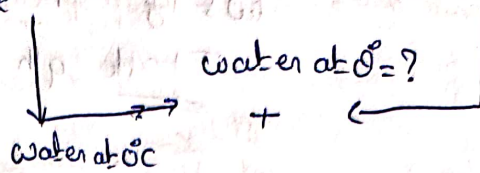 water at θ°=?
+
water at 0°C